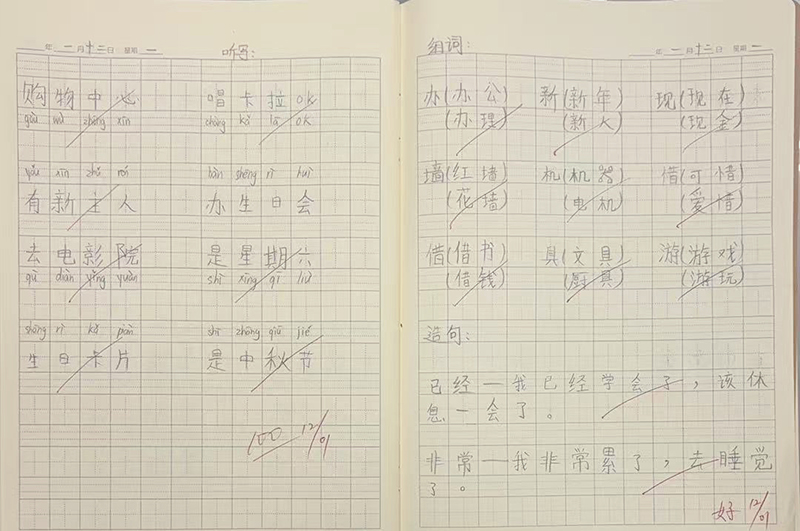 年 一 月 十二 日 星期 一 听写:
购物中心 唱卡拉ok
gòu wù zhōng xīn chàng kǎ lā ok
yǒu xīn zhǔ rén bàn shēng rì huì
有新主人 办生日会
去电影院 是星期六
qù diàn yǐng yuàn shì xīng qī liù
shēng rì kǎ piàn shì zhōng qiū jié
生日卡片 是中秋节
100 12/01
组词: 年 一 月 十二 日 星期 一
办(办公) 新(新年) 现(现在)
(办理) (新人) (现金)
墙(红墙) 机(机器) 惜(可惜)
(花墙) (电机) (爱惜)
借(借书) 具(文具) 游(游戏)
(借钱) (厨具) (游玩)
造句:
已经—我已经学会了，该休
息一会了。
非常—我非常累了，去睡觉
了。
好 12/01